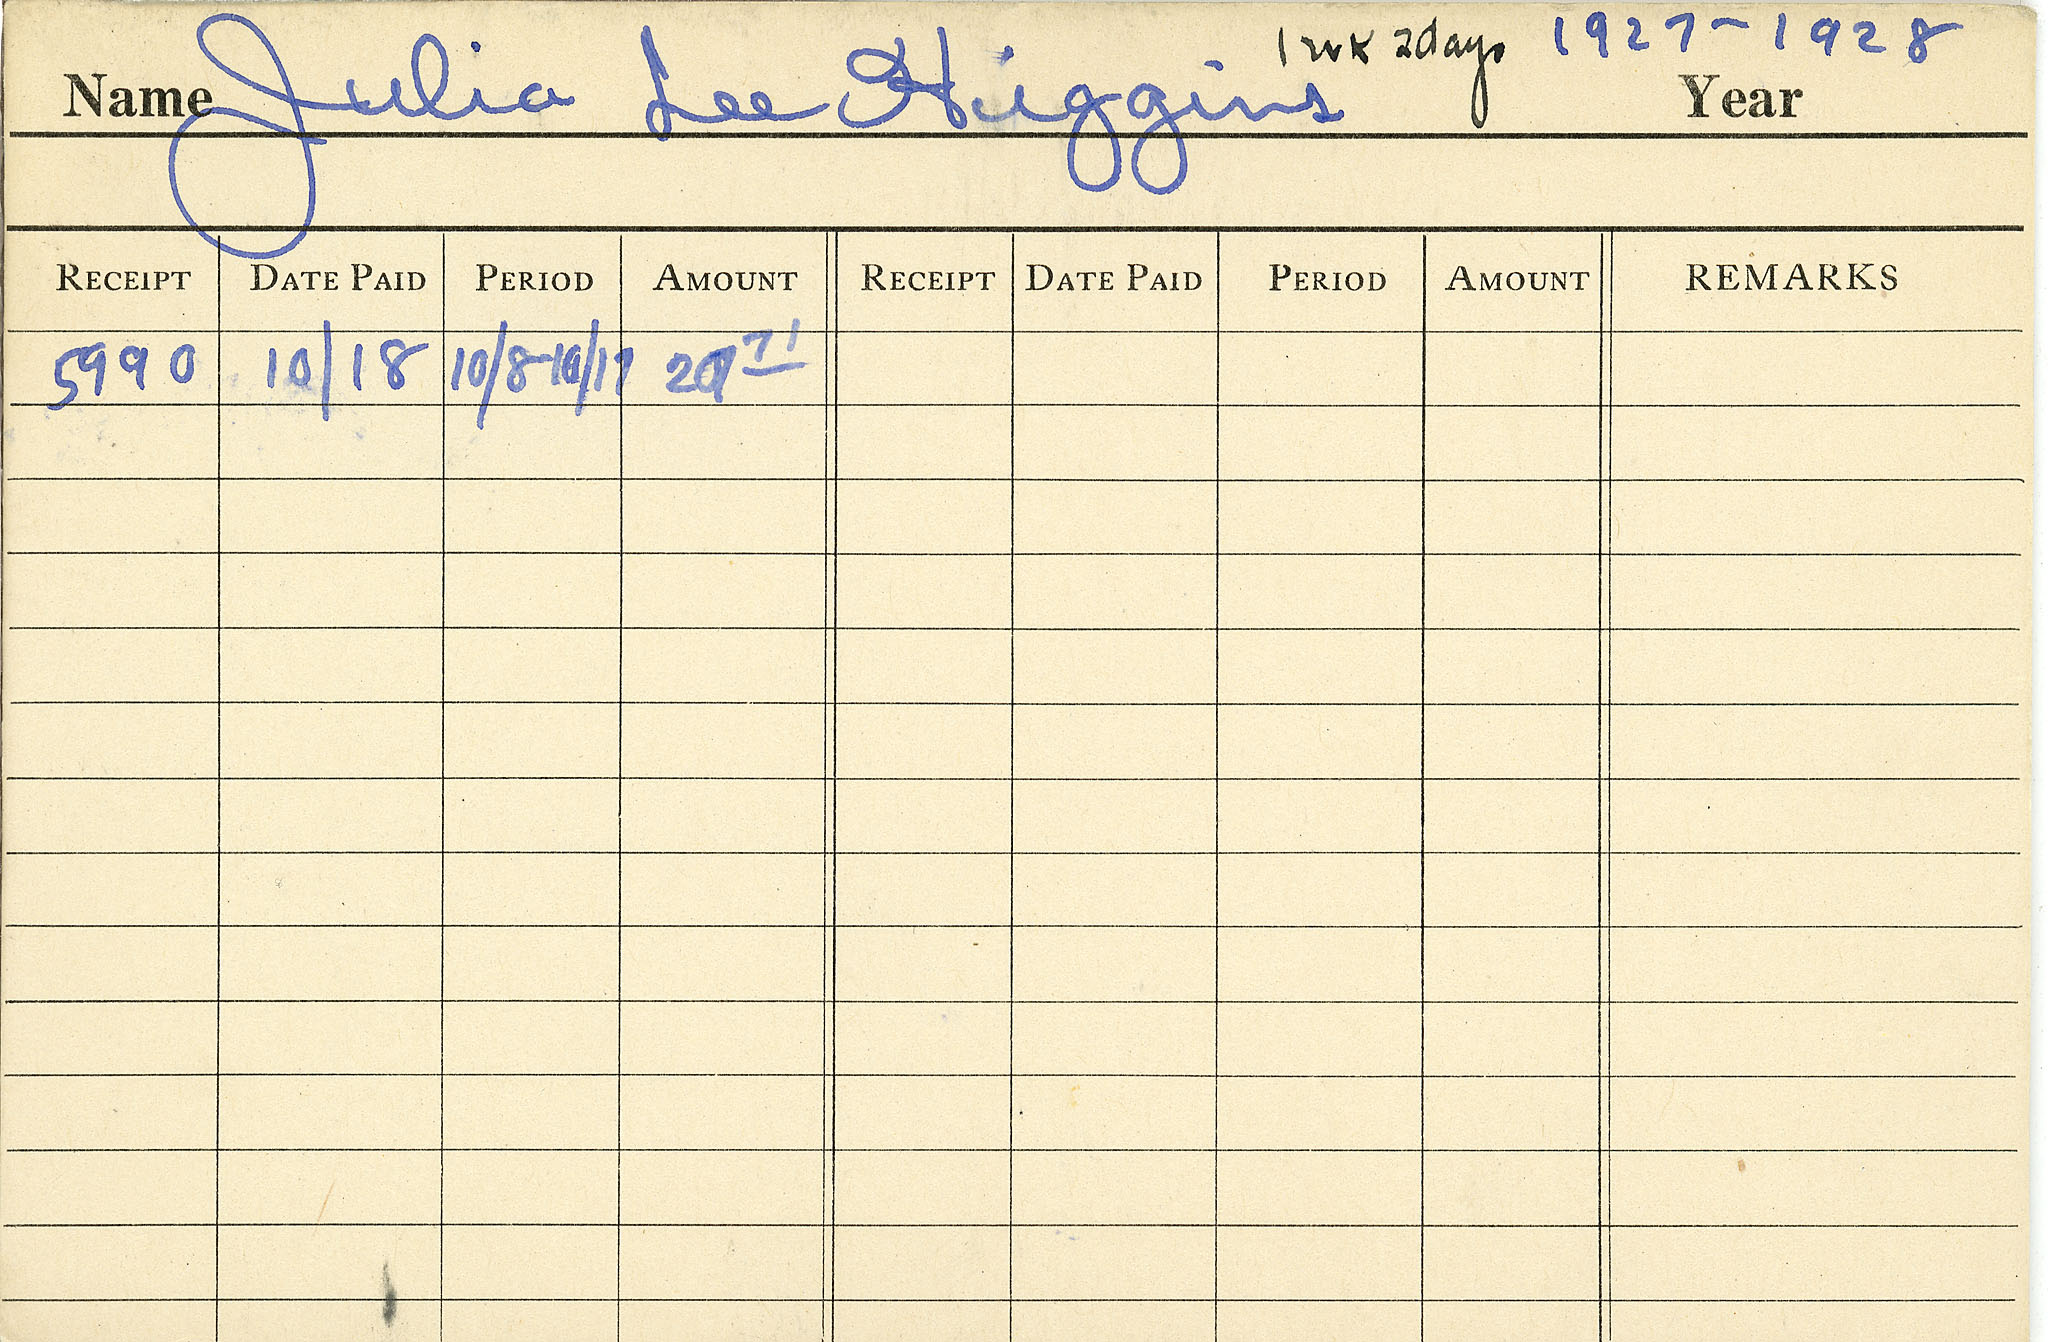 1 wk 2days 1927-1928
Name Julia Lee Higgins Year
RECEIPT DATE PAID PERIOD AMOUNT RECEIPT DATE PAID PERIOD AMOUNT REMARKS
5990 10/18 10/8-10/17